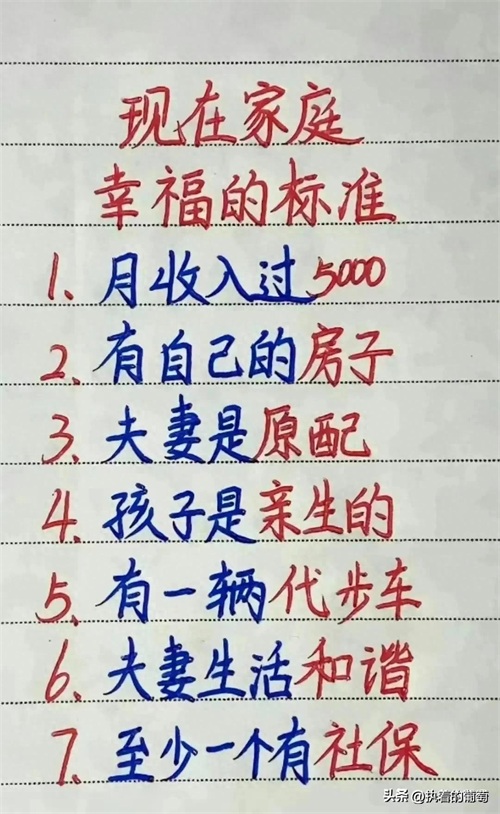 现在家庭
幸福的标准
1、月收入过5000
2、有自己的房子
3、夫妻是原配
4、孩子是亲生的
5、有一辆代步车
6、夫妻生活和谐
7、至少一个有社保
头条 @执着的葡萄